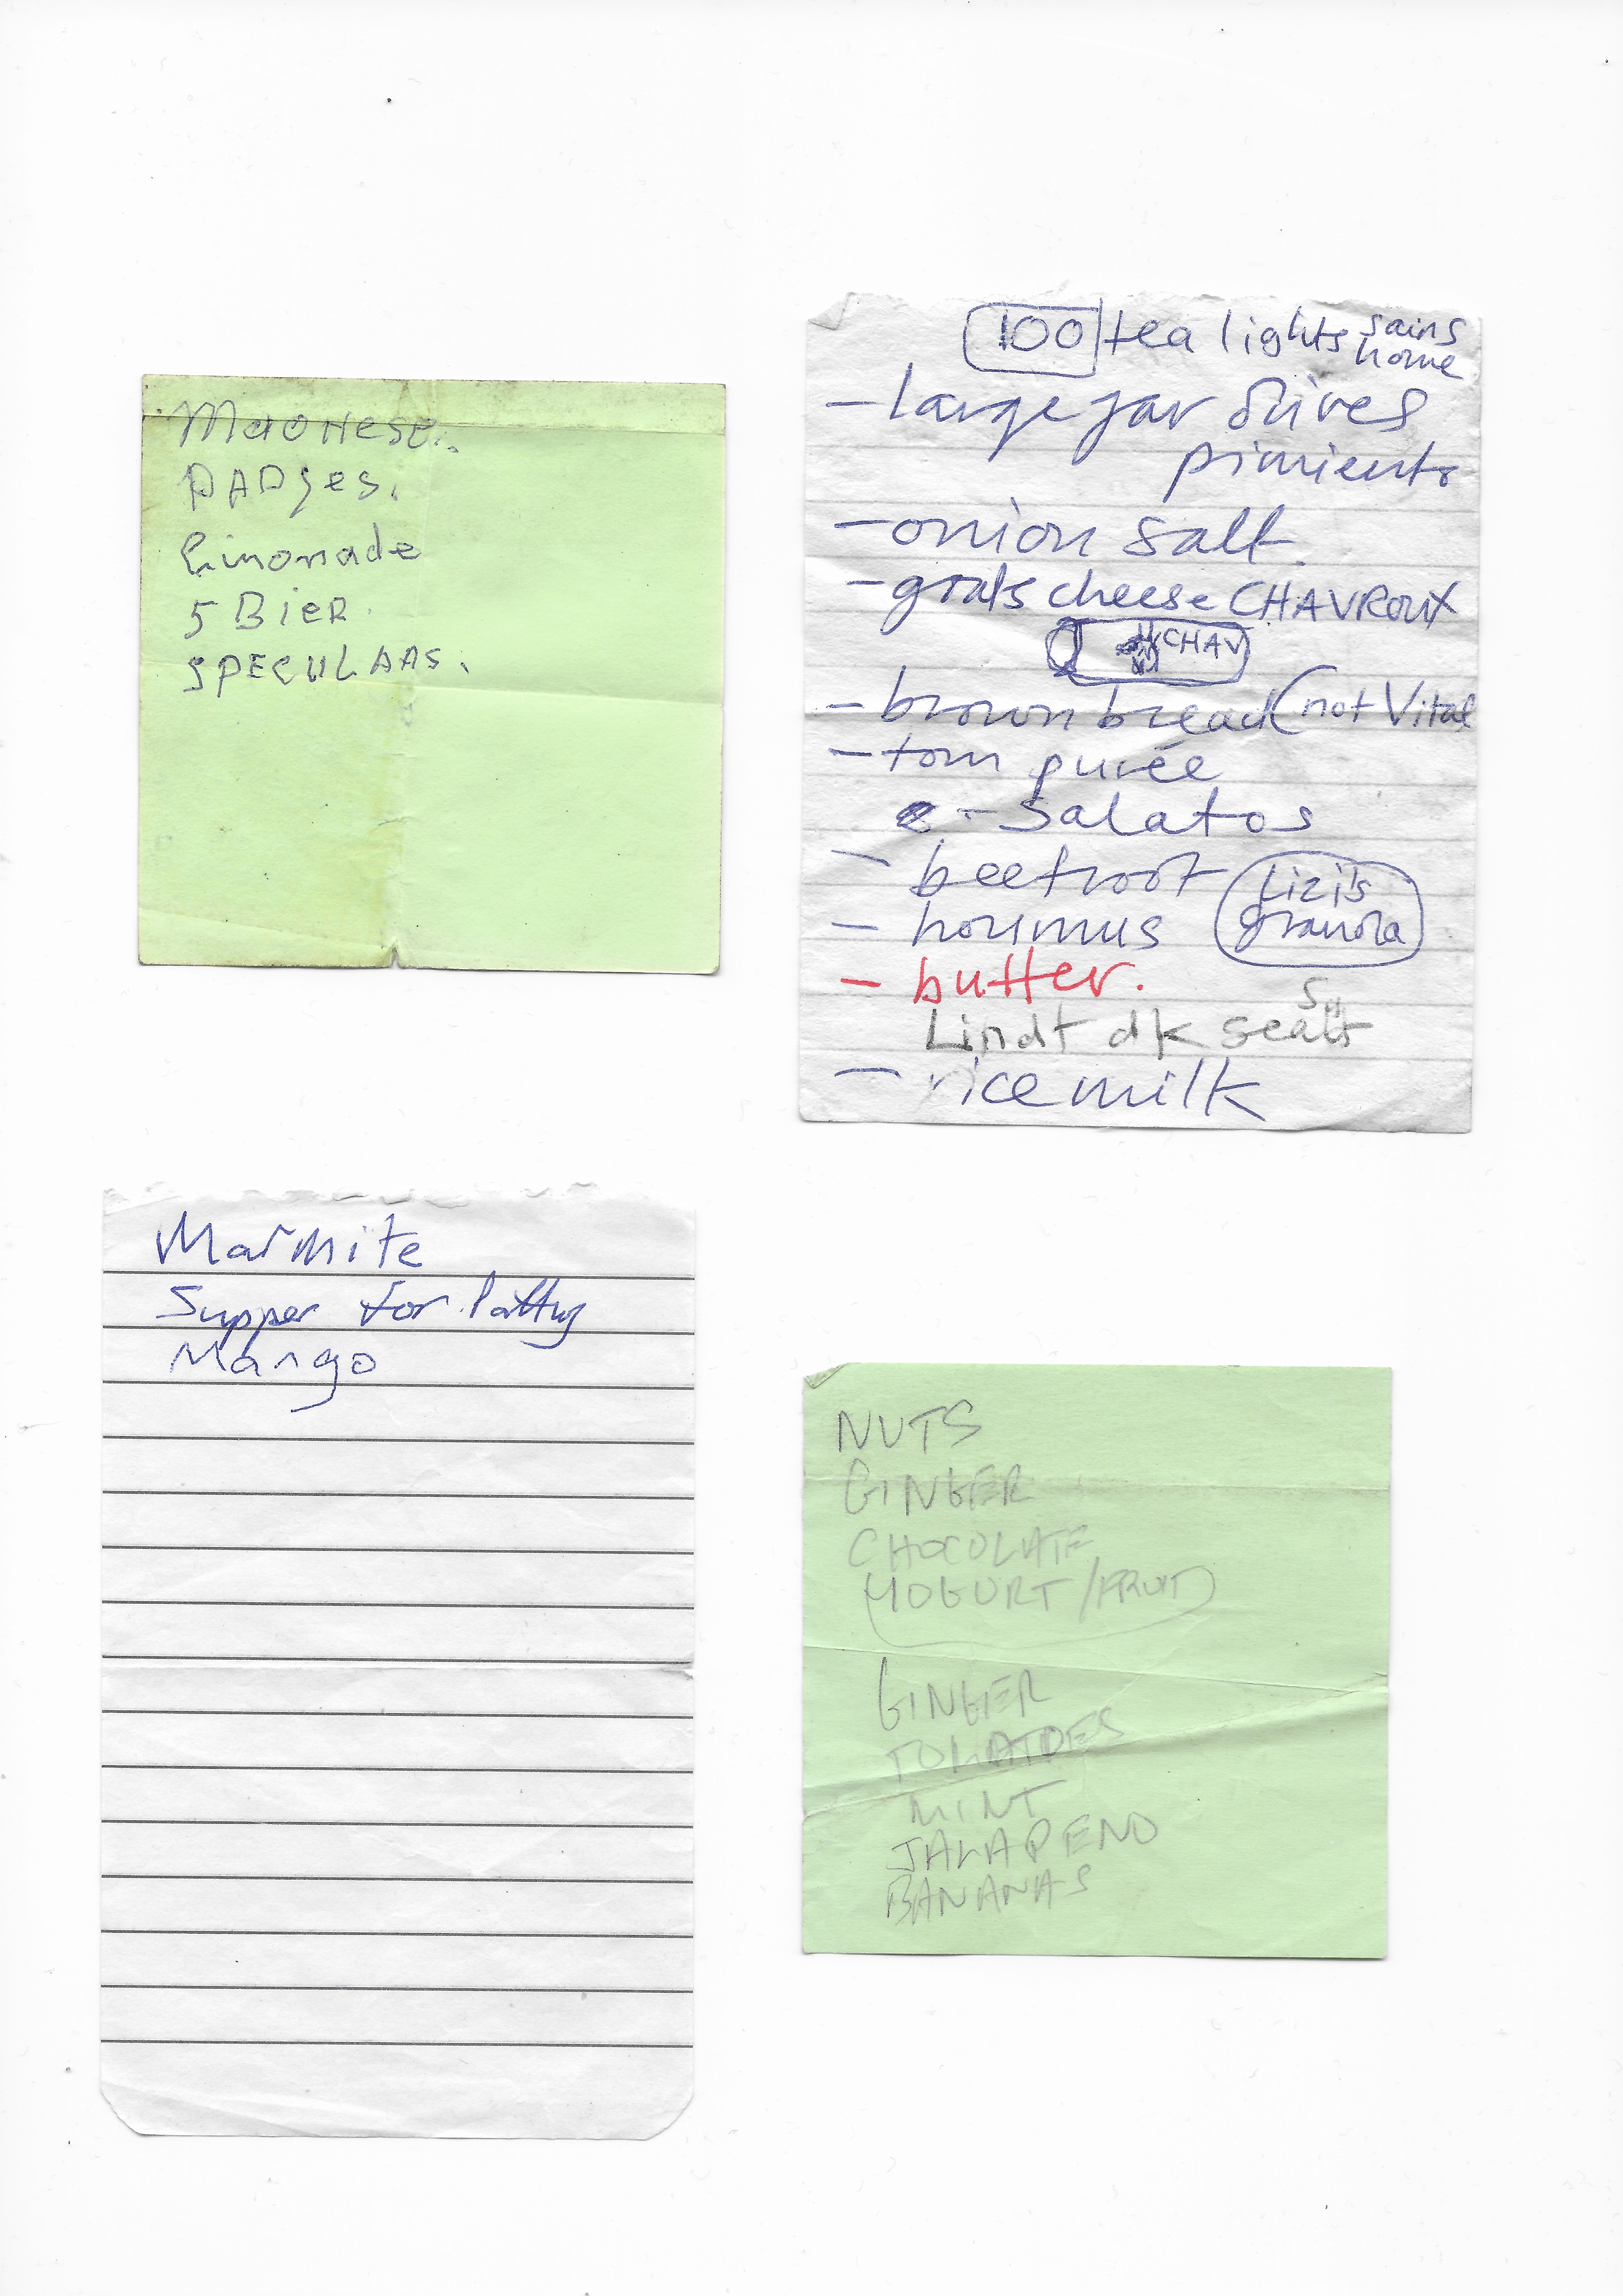 Maonese.
PADJes.
Limonade
5 BieR.
SPECULAAS.
100 tea lights sains
home
- large jar olives
pimiento
- onion salt
- goats cheese CHAVROUX
CHAV
- brown bread (not Vital
- tom purée
- salatos
- beetroot
Lizi's
granola
- houmus
- butter.
Lindt dk sealt
- rice milk
Marmite
Supper for Patty
Mango
NUTS
GINGER
CHOCOLATE
YOGURT / FRUIT
GINGER
TOMATOES
MINT
JALAPENO
BANANAS